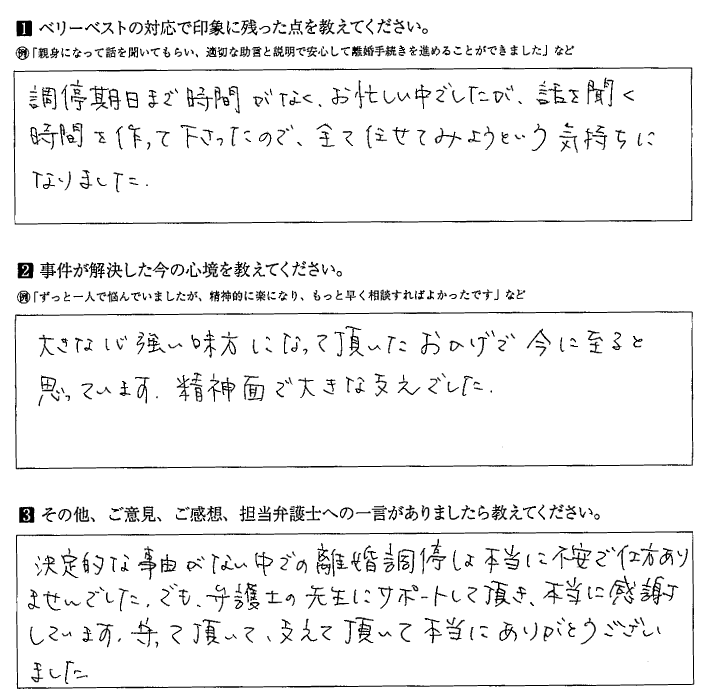 1 ベリーベストの対応で印象に残った点を教えてください。
例「親身になって話を聞いてもらい、適切な助言と説明で安心して離婚手続きを進めることができました」など
調停期日まで時間がなく、お忙しい中でしたが、話を聞く
時間を作って下さったので、全て任せてみようという気持ちに
なりました.
2 事件が解決した今の心境を教えてください。
例「ずっと一人で悩んでいましたが、精神的に楽になり、もっと早く相談すればよかったです」など
大きな心強い味方になって頂いたおかげで今に至ると
思っています. 精神面で大きな支えでした.
3 その他、ご意見、ご感想、担当弁護士への一言がありましたら教えてください。
決定的な事由がない中での離婚調停は本当に不安で仕方あり
ませんでした. でも、弁護士の先生にサポートして頂き、本当に感謝
しています. 守って頂いて、支えて頂いて本当にありがとうござい
ました